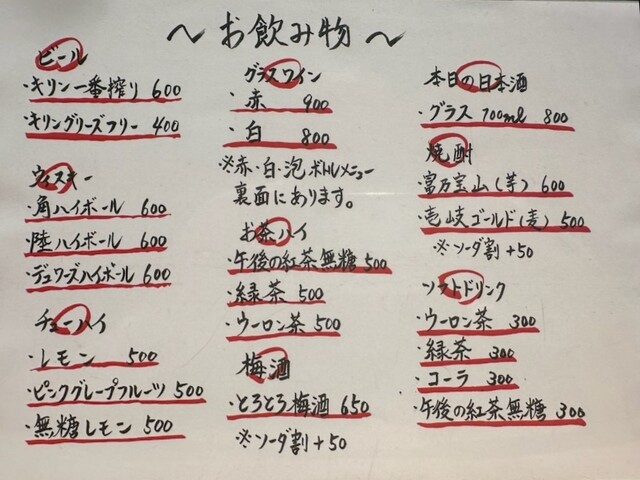 ～お飲み物～
ビール
・キリン一番搾り 600
・キリングリーズフリー 400
ウィスキー
・角ハイボール 600
・陸ハイボール 600
・デュワーズハイボール 600
チューハイ
・レモン 500
・ピンクグレープフルーツ 500
・無糖レモン 500
グラスワイン
・赤 900
・白 800
※赤・白・泡ボトルメニュー
裏面にあります。
お茶ハイ
・午後の紅茶無糖 500
・緑茶 500
・ウーロン茶 500
梅酒
・とろとろ梅酒 650
※ソーダ割+50
本日の日本酒
・グラス 100ml 800
焼酎
・富乃宝山(芋) 600
・壱岐ゴールド(麦) 500
※ソーダ割+50
ソフトドリンク
・ウーロン茶 300
・緑茶 300
・コーラ 300
・午後の紅茶無糖 300